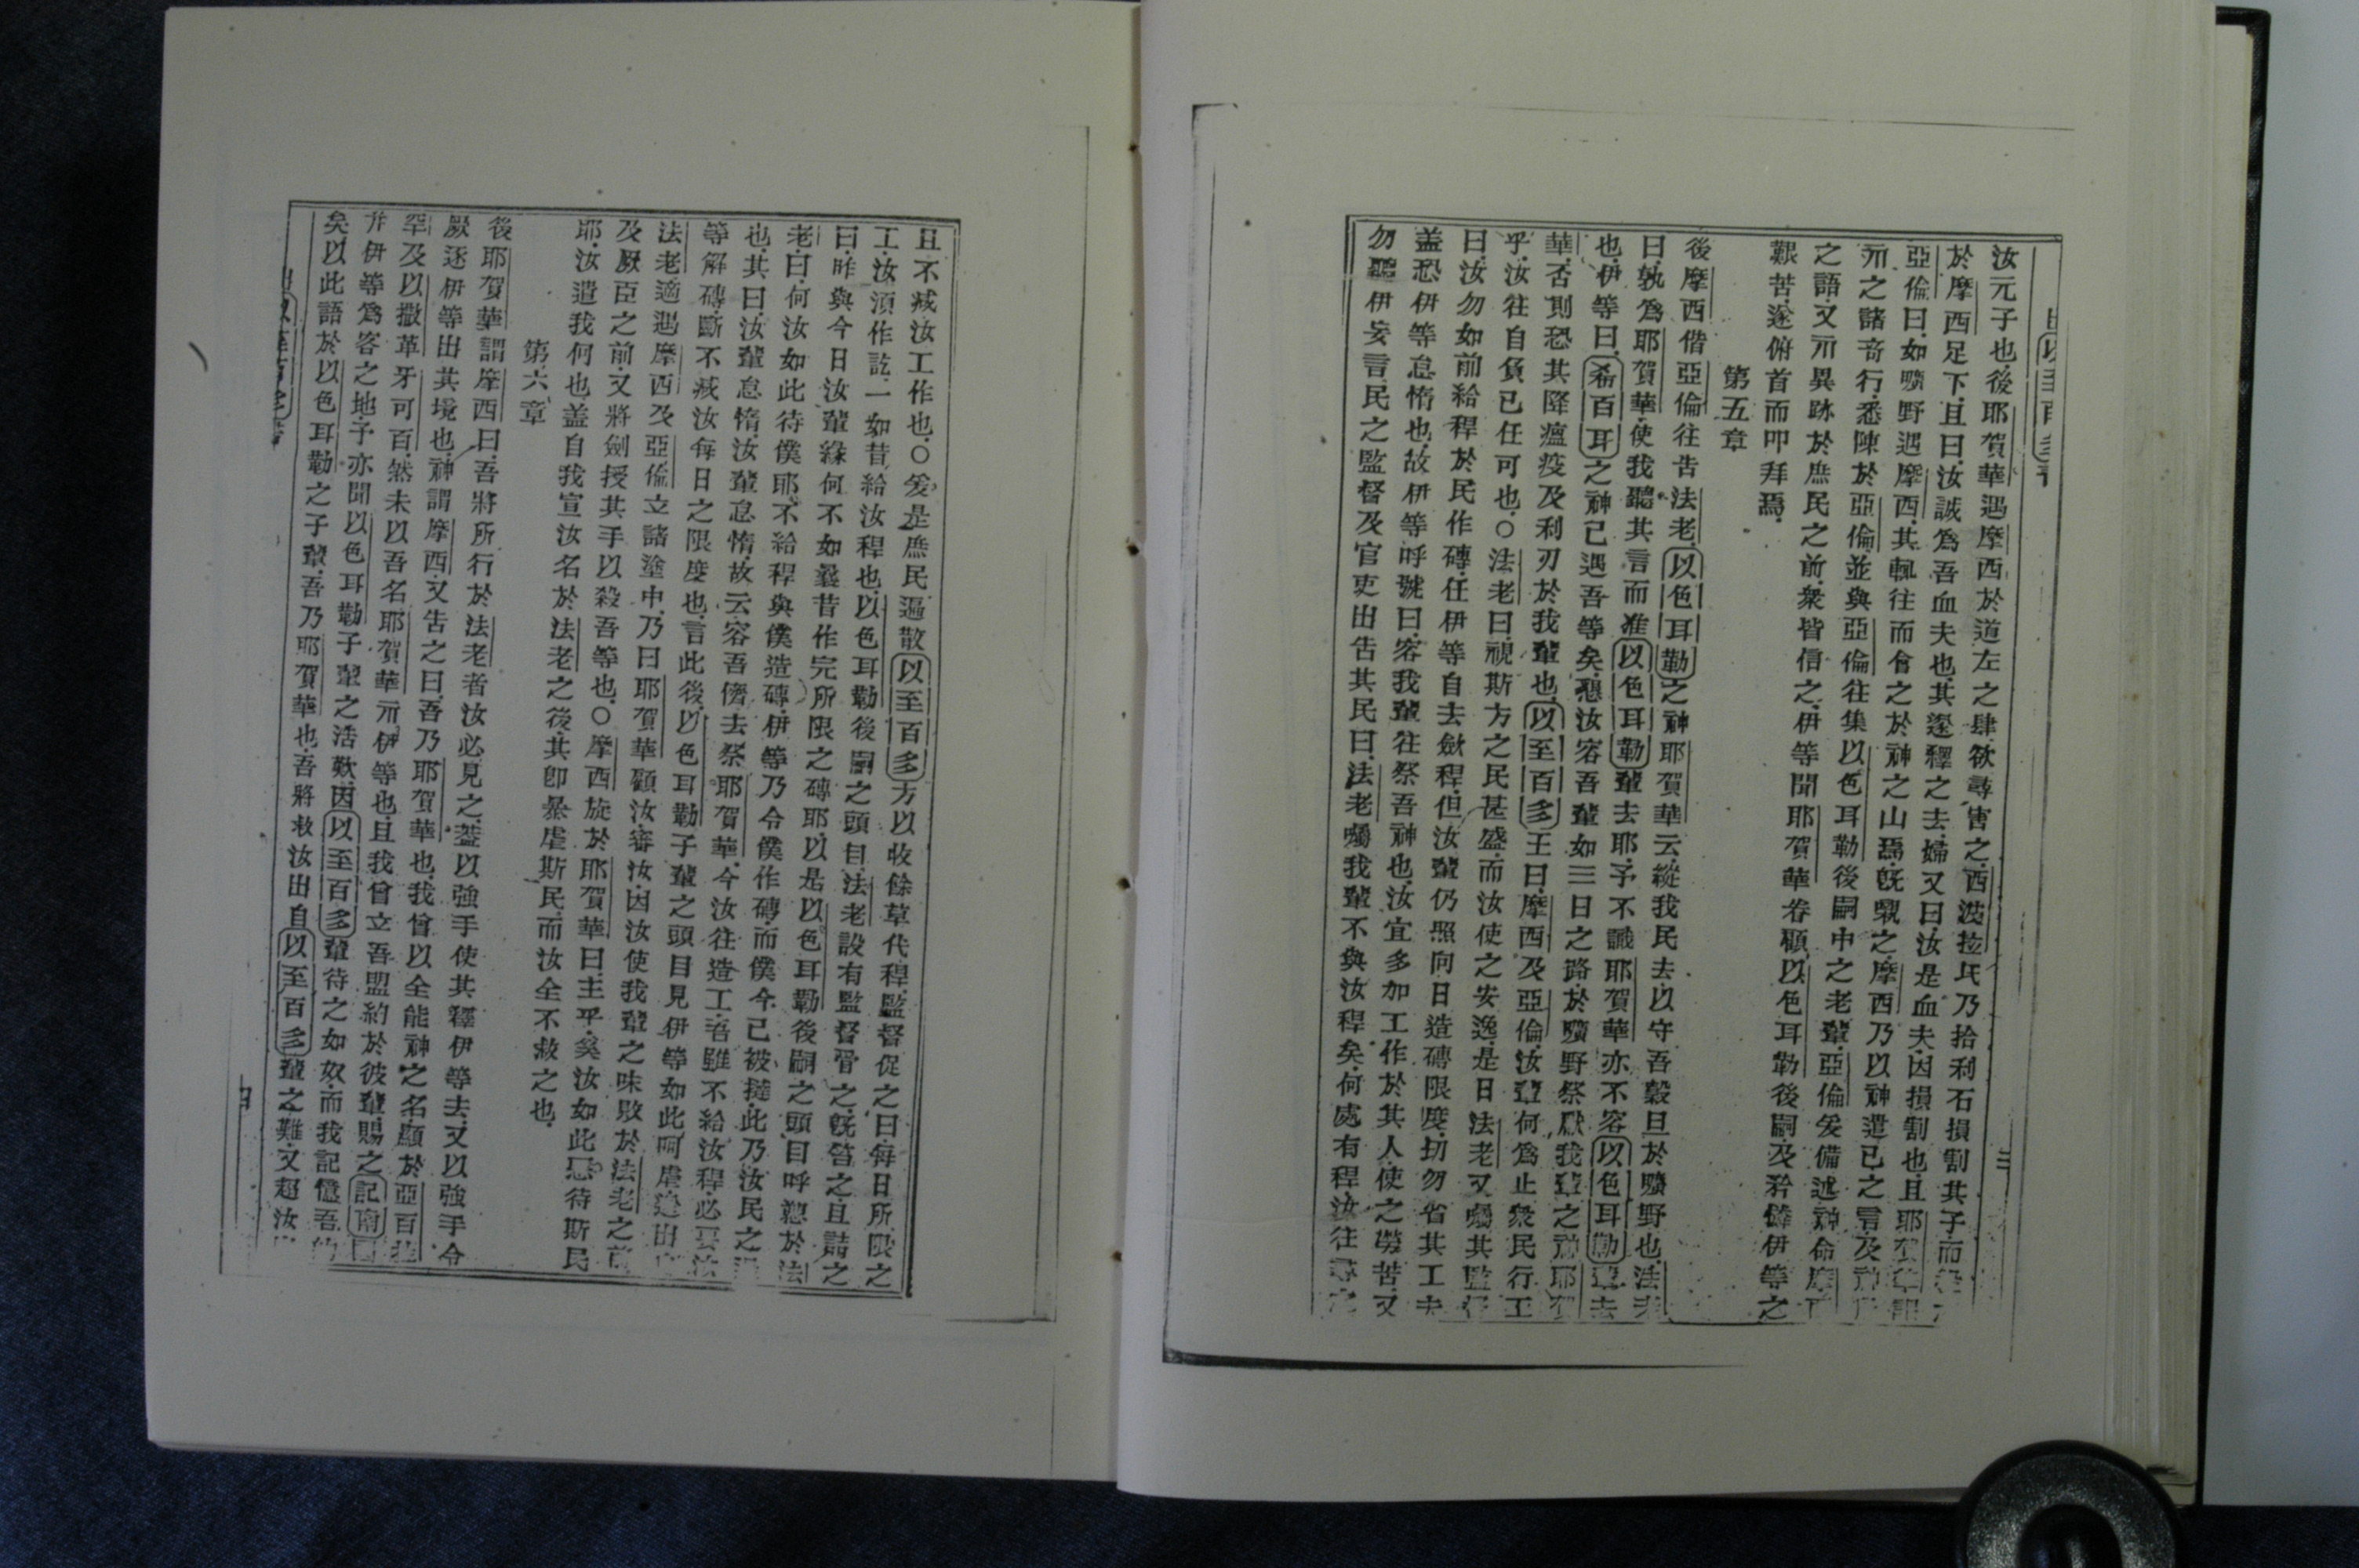 出以至百多書 三
汝元子也後耶賀華遇摩西於道左之肆欲尋害之西波拉氏乃拾利石損割其子而
於摩西足下且曰汝誠為吾血夫也其遂釋之去婦又曰汝是血夫因損割也且耶賀華謂
亞倫曰如曠野遇摩西其輒往而會之於神之山焉既覿之摩西乃以神遣已之言及神所
示之諸奇行悉陳於亞倫並與亞倫往集以色耳勒後嗣中之老輩亞倫爰備述神命摩西
之語又示異跡於庶民之前衆皆信之伊等聞耶賀華眷顧以色耳勒後嗣及矜憐伊等之
艱苦遂俯首而叩拜焉
第五章
後摩西偕亞倫往告法老以色耳勒之神耶賀華云縱我民去以守吾穀旦於曠野也法老
曰孰為耶賀華使我聽其言而准以色耳勒輩去耶予不識耶賀華亦不容以色耳勒輩去
也伊等曰希百耳之神已遇吾等矣懇汝容吾輩如三日之路於曠野祭厭我輩之神耶賀
華否則恐其降瘟疫及利刃於我輩也以至百多王曰摩西及亞倫汝輩何為止衆民行工
乎汝往自負已任可也〇法老曰視斯方之民甚盛而汝使之安逸是日法老又囑其監督
曰汝勿如前給稈於民作磚任伊等自去斂稈但汝輩仍照向日造磚限度切勿省其工夫
盖恐伊等怠惰也故伊等呼號曰容我輩往祭吾神也汝宜多加工作於其人使之勞苦又
勿聽伊妄言民之監督及官吏出告其民曰法老囑我輩不與汝稈矣何處有稈汝往尋之
且不減汝工作也〇爰是庶民遍散以至百多方以收餘草代稈監督促之曰每日所限之
工汝須作訖一如昔給汝稈也以色耳勒後嗣之頭目法老設有監督督之既笞之且詰之
曰昨與今日汝輩緣何不如曩昔作完所限之磚耶以是以色耳勒後嗣之頭目呼懇於法
老曰何汝如此待僕耶不給稈與僕造磚伊等乃令僕作磚而僕今已被撻此乃汝民之
也其曰汝輩怠惰汝輩怠惰故云容吾儕去祭耶賀華今汝往造工吾雖不給汝稈必要汝
等解磚斷不減汝每日之限度也言此後以色耳勒子輩之頭目見伊等如此呵虐遂出
法老適遇摩西及亞倫立諸塗中乃曰耶賀華顧汝審汝因汝使我輩之味敗於法老之前
及厥臣之前又將劍授其手以殺吾等也〇摩西旋於耶賀華曰主乎奚汝如此惡待斯民
耶汝遣我何也盖自我宣汝名於法老之後其即暴虐斯民而汝全不救之也
第六章
後耶賀華謂摩西曰吾將所行於法老者汝必見之盖以強手使其釋伊等去又以強手令
厥逐伊等出其境也神謂摩西又告之曰吾乃耶賀華也我曾以全能神之名顯於亞百
罕及以撒革牙可百然未以吾名耶賀華示伊等也且我曾立吾盟約於彼輩賜之記南
并伊等為客之地予亦聞以色耳勒子輩之活歎因以至百多輩待之如奴而我記憶吾約
矣以此語於以色耳勒之子輩吾乃耶賀華也吾將救汝出自以至百多輩之難又超汝
四